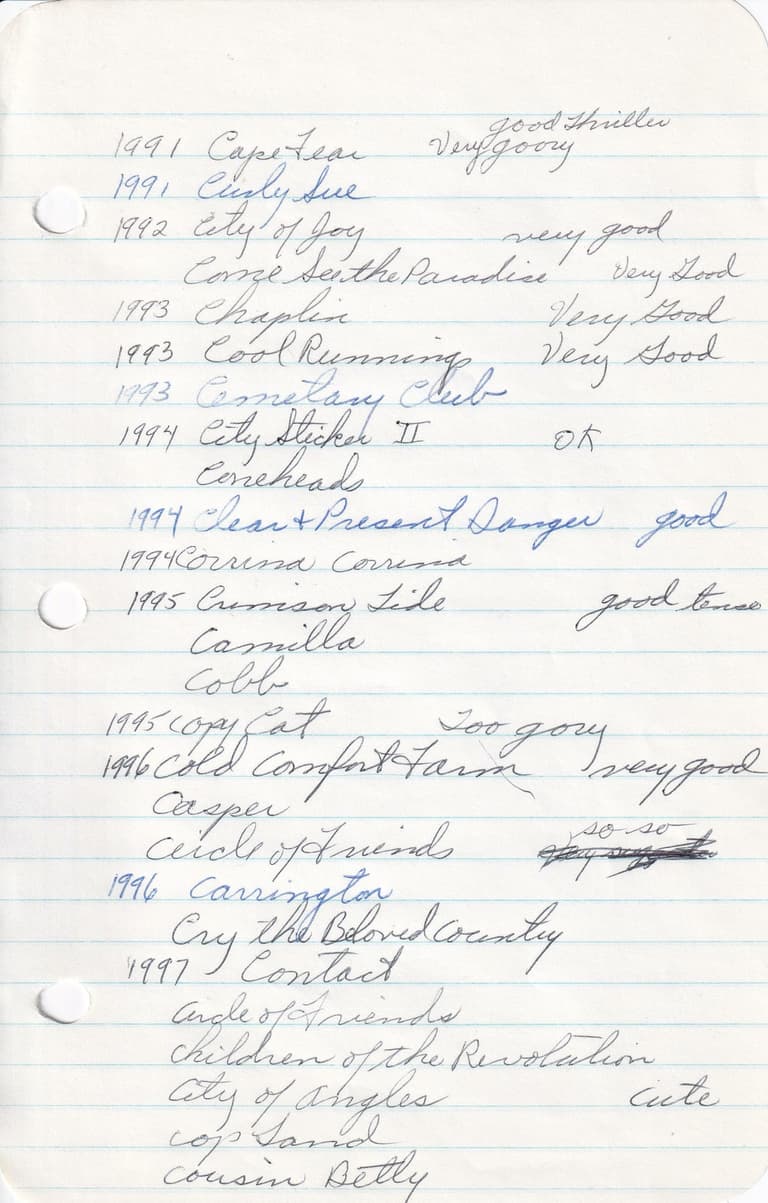 good thriller
1991 Cape Fear Very goory
1991 Curly Sue
1992 City of Joy very good
Come See the Paradise Very Good
1993 Chaplin Very Good
1993 Cool Runnings Very Good
1993 Cemetary Club
1994 City Slicker II OK
Coneheads
1994 Clear + Present Danger good
1994 Corrina Corrina
1995 Crimison Tide good tense
Camilla
Cobb
1995 Copy Cat Too gory
1996 Cold Comfort Farm very good
Casper
so so
Circle of Friends
1996 Carrington
Cry the Beloved Country
1997 Contact
Circle of Friends
Children of the Revolution
City of Angles cute
Cop Land
Cousin Betty